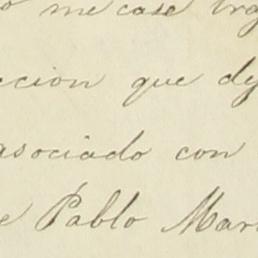 o me case leg
ccion que de
asociado con
e Pablo Mar